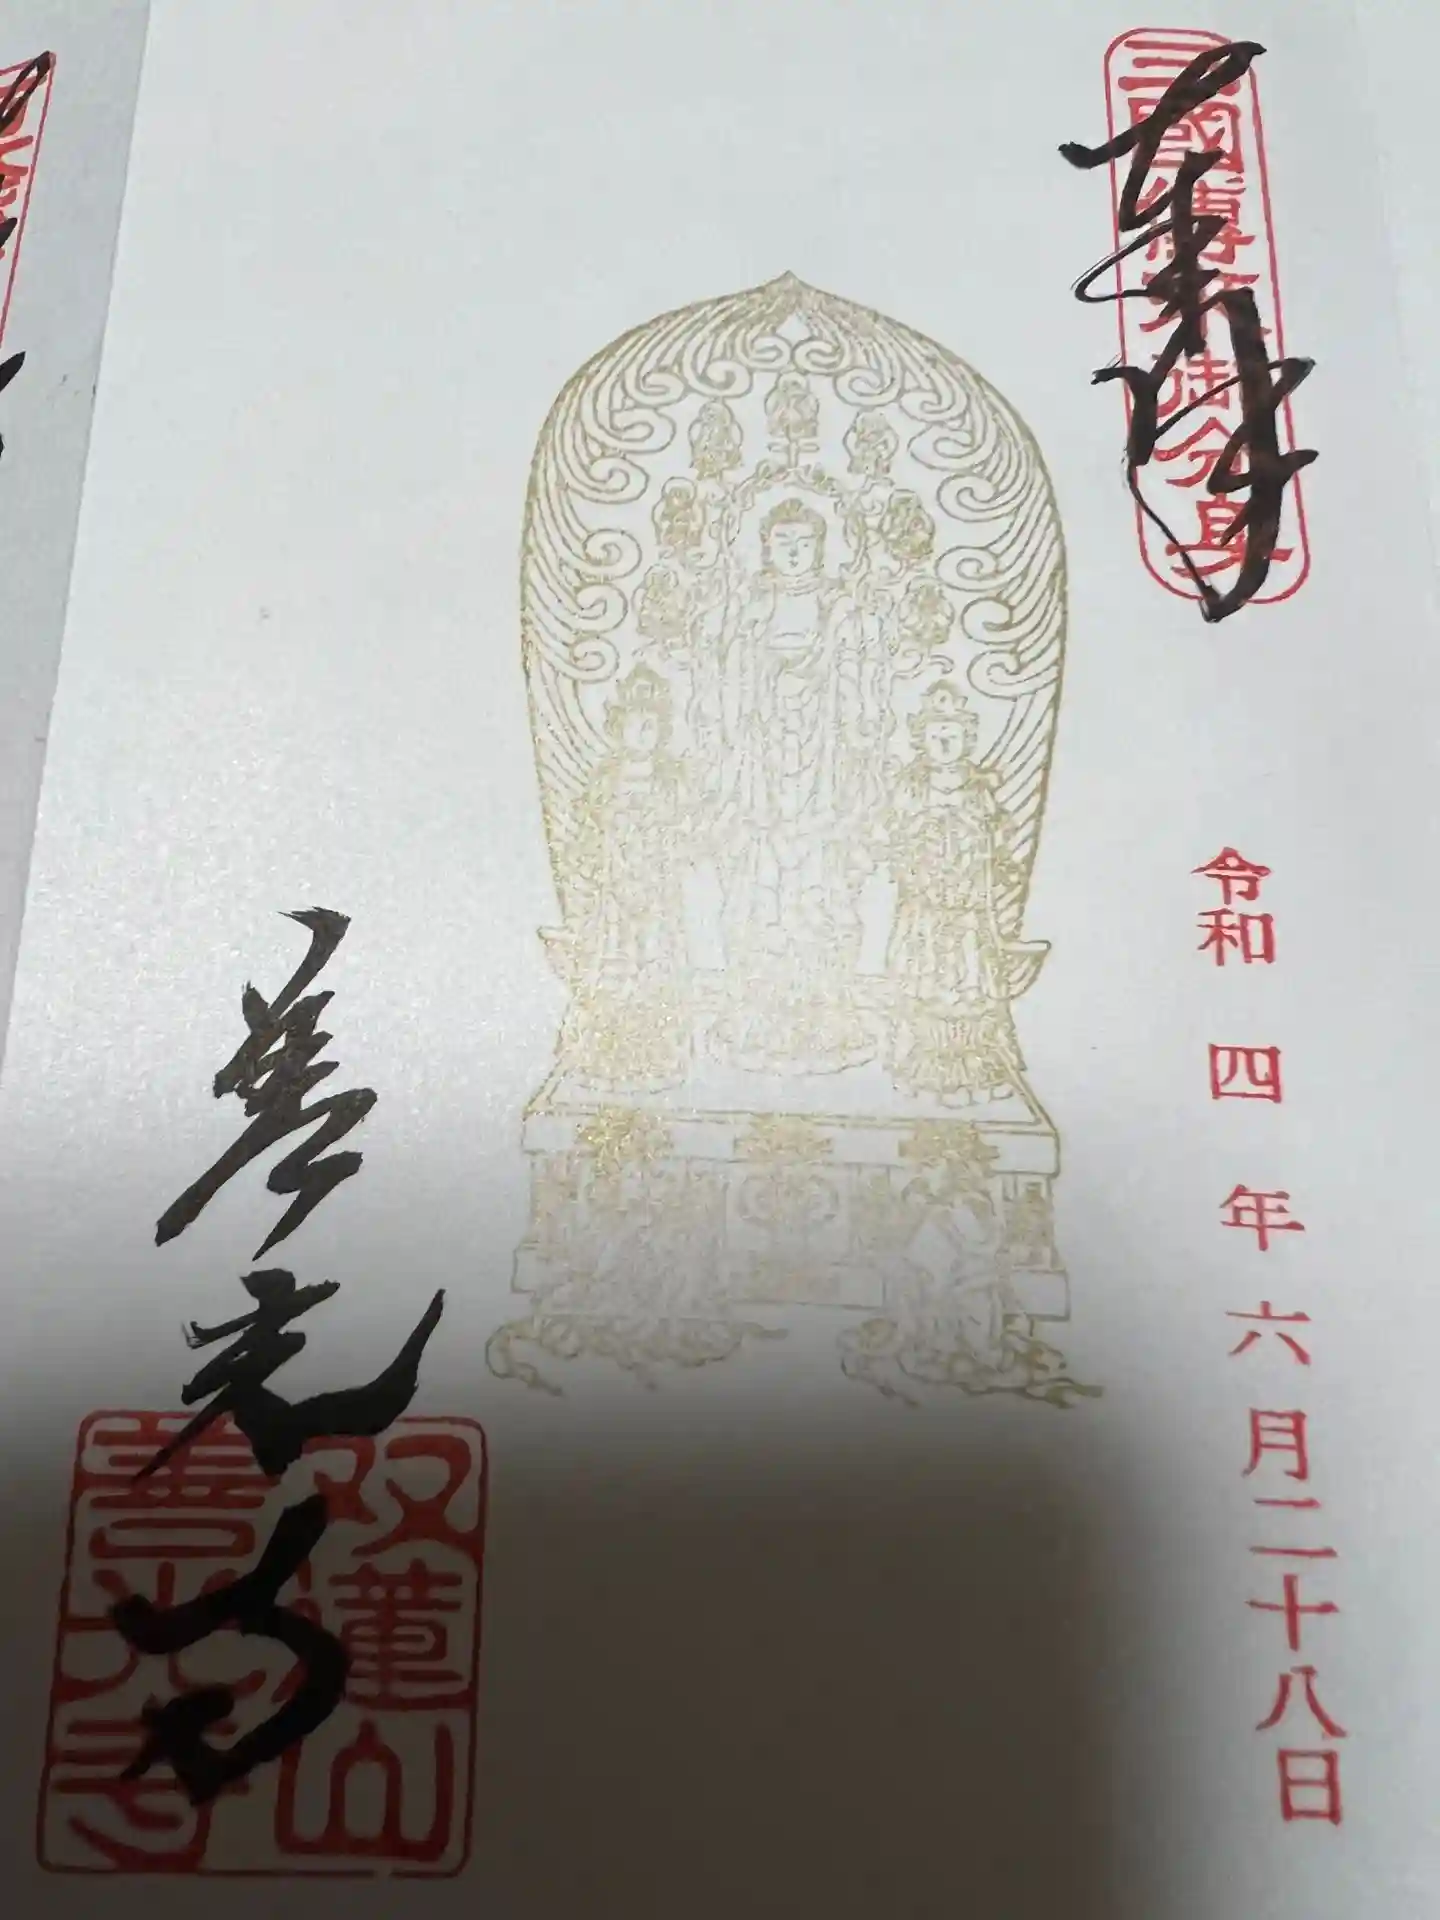 奉拝
三國傳来御分身
令和四年六月二十八日
善光寺
善光寺